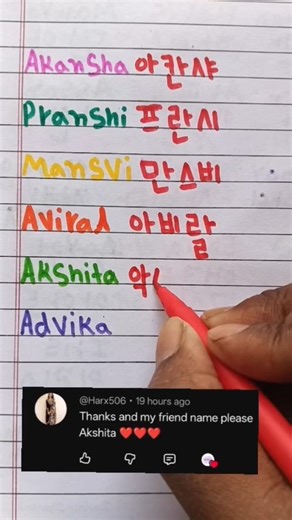 Akansha 아칸샤
Pranshi 프란시
Mansvi 만스비
Aviral 아비랄
Akshita 악
Advika
@Harx506 • 19 hours ago
Thanks and my friend name please
Akshita ❤️❤️❤️